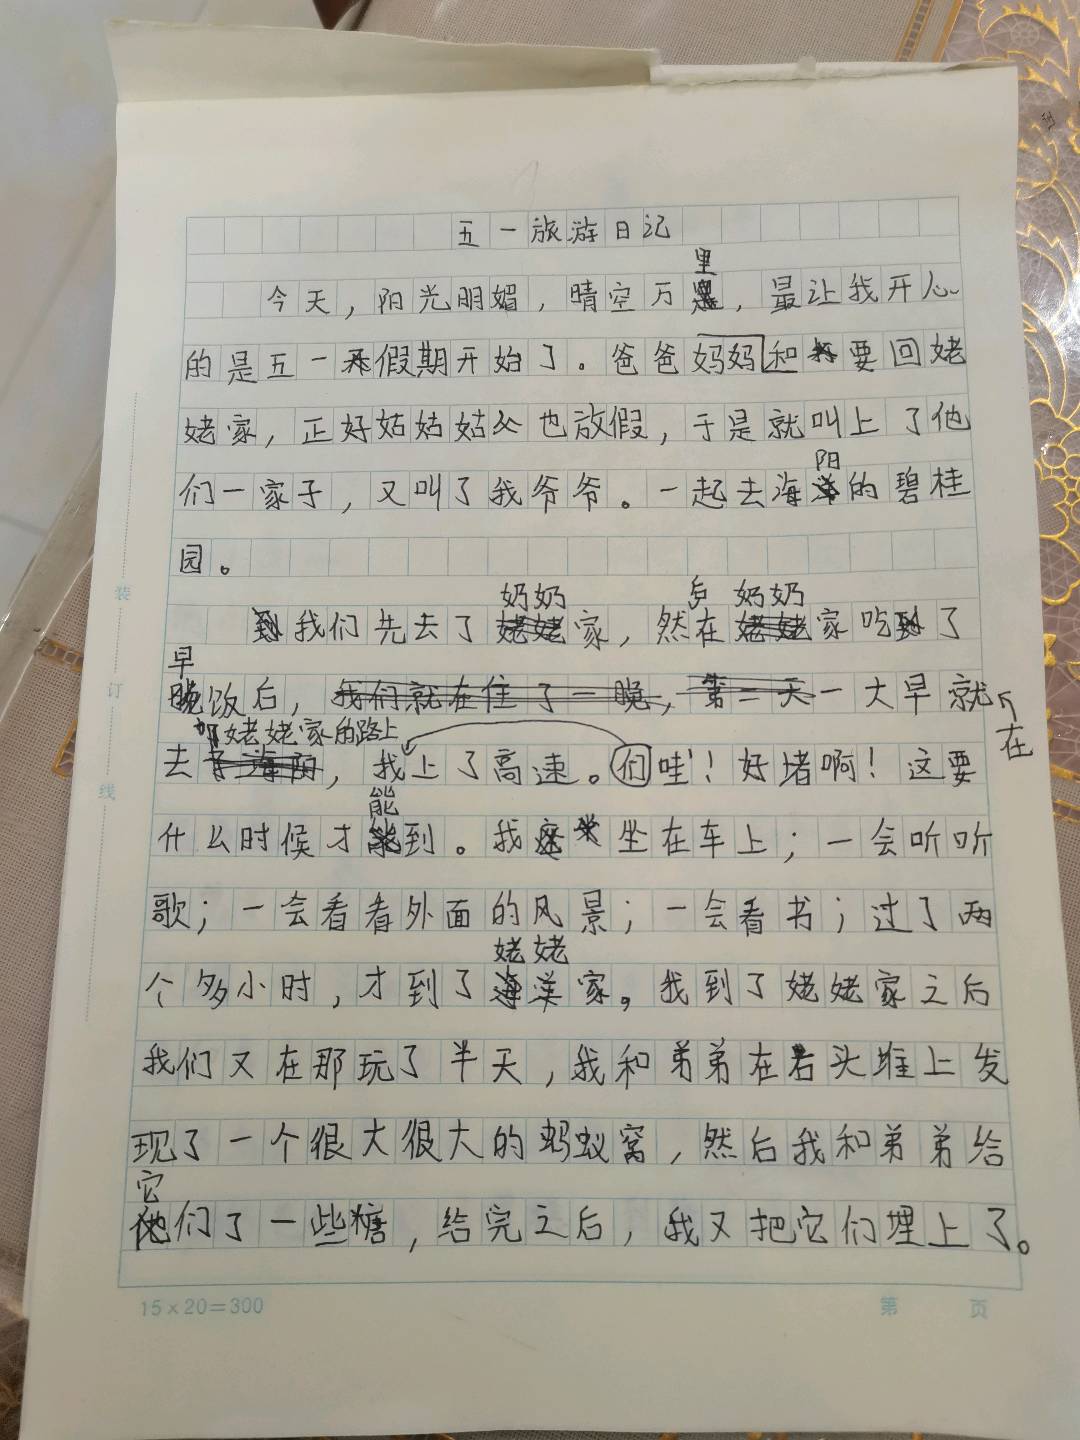 五一旅游日记
今天，阳光明媚，晴空万里，最让我开心
的是五一假期开始了。爸爸妈妈和要回姥
姥家，正好姑姑姑父也放假，于是就叫上了他
们一家子，又叫了我爷爷。一起去海阳的碧桂
园。
我们先去了奶奶家，然后在奶奶家吃了
早饭后，一大早就在
去姥姥家的路上，我们上了高速。哇！好堵啊！这要
什么时候才能到。我坐在车上；一会听听
歌；一会看看外面的风景；一会看书；过了两
个多小时，才到了姥姥家。我到了姥姥家之后
我们又在那玩了半天，我和弟弟在石头堆上发
现了一个很大很大的蚂蚁窝，然后我和弟弟给
它们了一些糖，给完之后，我又把它们埋上了。
装
订
线
15×20=300
第 页